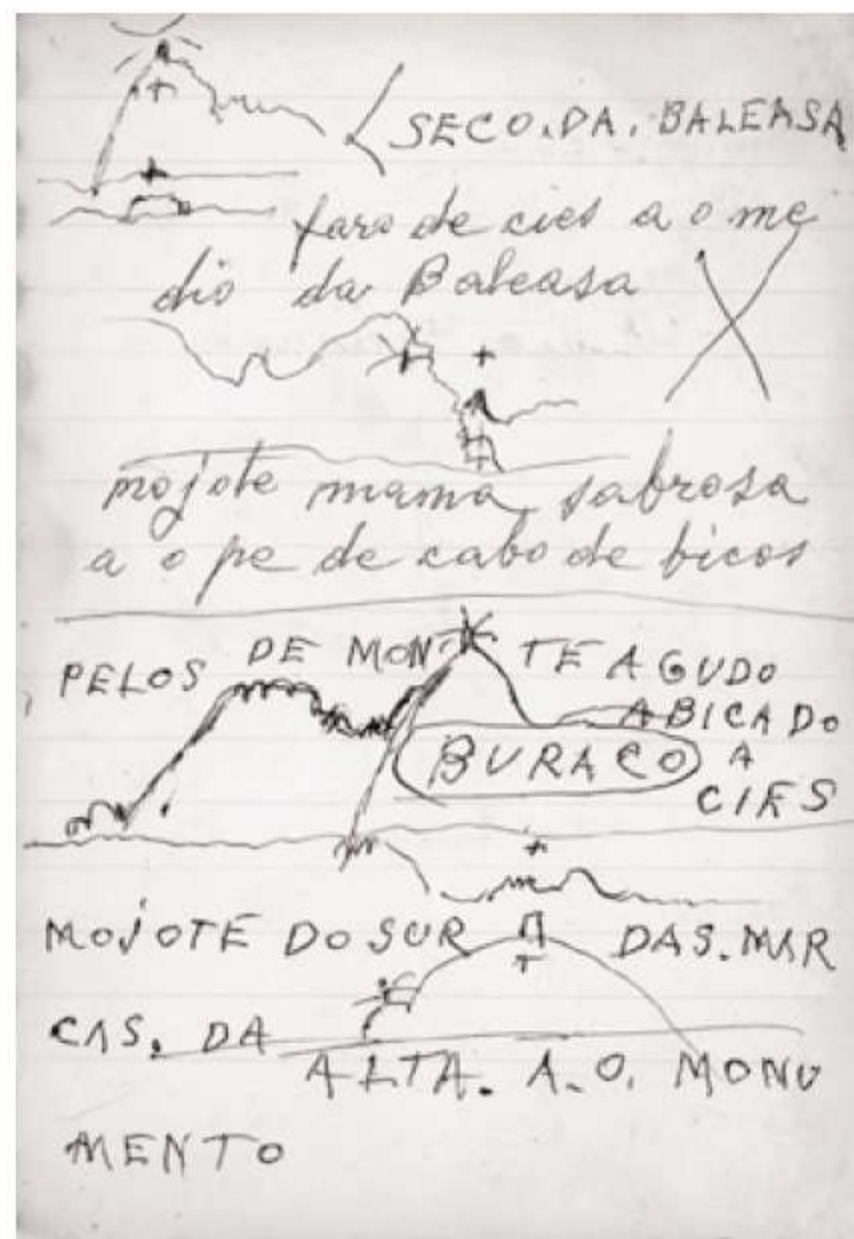 SECO. DA. BALEASA
faro de cies a o me
dio da Baleasa
mojote mama sabrosa
a o pe de cabo de bicos
PELOS DE MONTE AGUDO
ABICADO
BURACO A
CIES
MOJOTE DO SUR DAS. MAR
CAS. DA
ALTA. A. O. MONU
MENTO